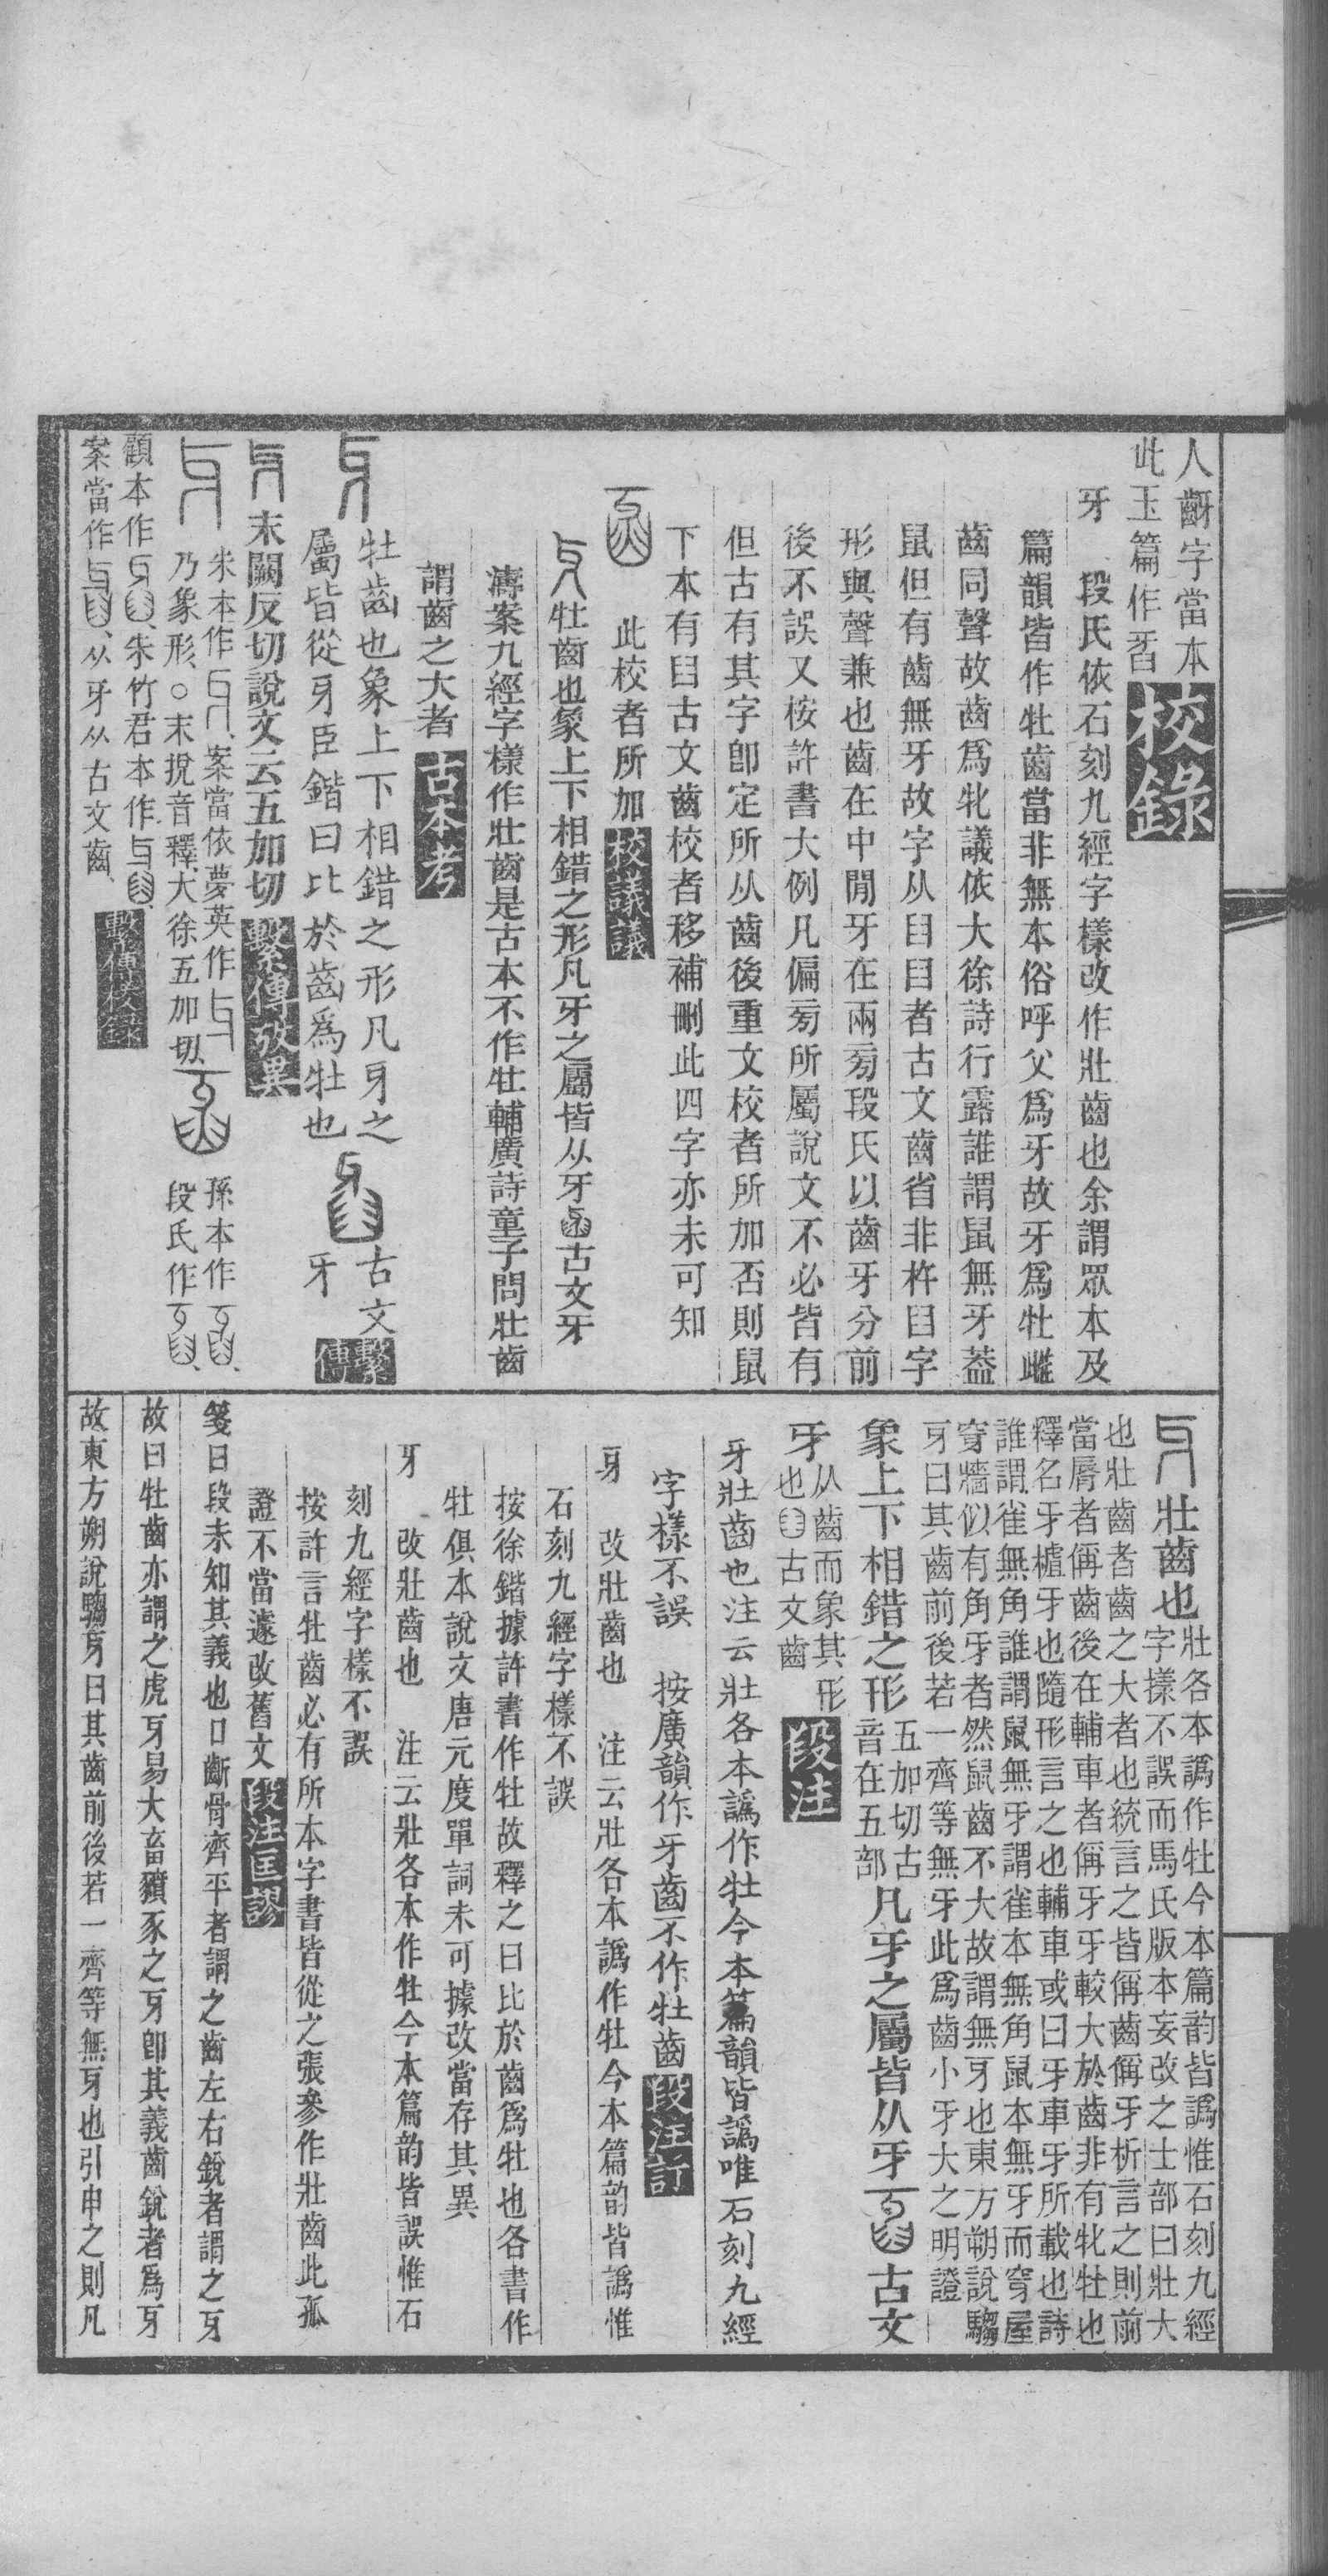 人齖字當本
此玉篇作㸦
校錄
牙　段氏依石刻九經字樣改作壯齒也余謂眾本及
篇韻皆作牡齒當非無本俗呼父爲牙故牙爲牡雌
齒同聲故齒爲牝議依大徐詩行露誰謂鼠無牙葢
鼠但有齒無牙故字从臼臼者古文齒省非杵臼字
形與聲兼也齒在中閒牙在兩㫄段氏以齒牙分前
後不誤又桉許書大例凡偏㫄所屬說文不必皆有
但古有其字卽定所从齒後重文校者所加否則鼠
下本有臼古文齒校者移補刪此四字亦未可知
此校者所加校議議
牡齒也象上下相錯之形凡牙之屬皆从牙　古文牙
濤案九經字樣作壯齒是古本不作牡輔廣詩童子問壯齒
謂齒之大者古本考
牡齒也象上下相錯之形凡牙之
屬皆從牙臣鍇曰比於齒爲牡也
古文
牙
繫傳
末闕反切說文云五加切繫傳攷異
朱本作　案當依夢英作
乃象形、○末挩音釋、大徐五加切、
孫本作
段氏作
顧本作　、朱竹君本作　、
案當作　、从牙从古文齒、
繫傳校錄
壯齒也
壯各本譌作牡今本篇韵皆譌惟石刻九經
字㨾不誤而馬氏版本妄改之士部曰壯大
也壯齒者齒之大者也統言之皆偁齒偁牙析言之則前
當脣者偁齒後在輔車者偁牙牙較大於齒非有牝牡也
釋名牙樝牙也隨形言之也輔車或曰牙車牙所載也詩
誰謂雀無角誰謂鼠無牙謂雀本無角鼠本無牙而穿屋
穿牆似有角牙者然鼠齒不大故謂無牙也東方朔說騶
牙曰其齒前後若一齊等無牙此爲齒小牙大之明證
象上下相錯之形
五加切古
音在五部
凡牙之屬皆从牙　古文
牙
从齒而象其形
也　古文齒
段注
牙壯齒也注云壯各本譌作牡今本篇韻皆譌唯石刻九經
字樣不誤　按廣韻作牙齒不作牡齒段注訂
牙　改壯齒也　注云壯各本譌作牡今本篇韵皆譌惟
石刻九經字樣不誤
按徐鍇據許書作牡故釋之曰比於齒爲牡也各書作
牡俱本說文唐元度單詞未可據改當存其異
牙　改壯齒也　注云壯各本作牡今本篇韵皆誤惟石
刻九經字樣不誤
按許言牡齒必有所本字書皆從之張參作壯齒此孤
證不當遽改舊文段注匡謬
箋曰段未知其義也口齗骨齊平者謂之齒左右銳者謂之牙
故曰牡齒亦謂之虎牙易大畜豶豕之牙卽其義齒銳者爲牙
故東方朔說騶牙曰其齒前後若一齊等無牙也引申之則凡